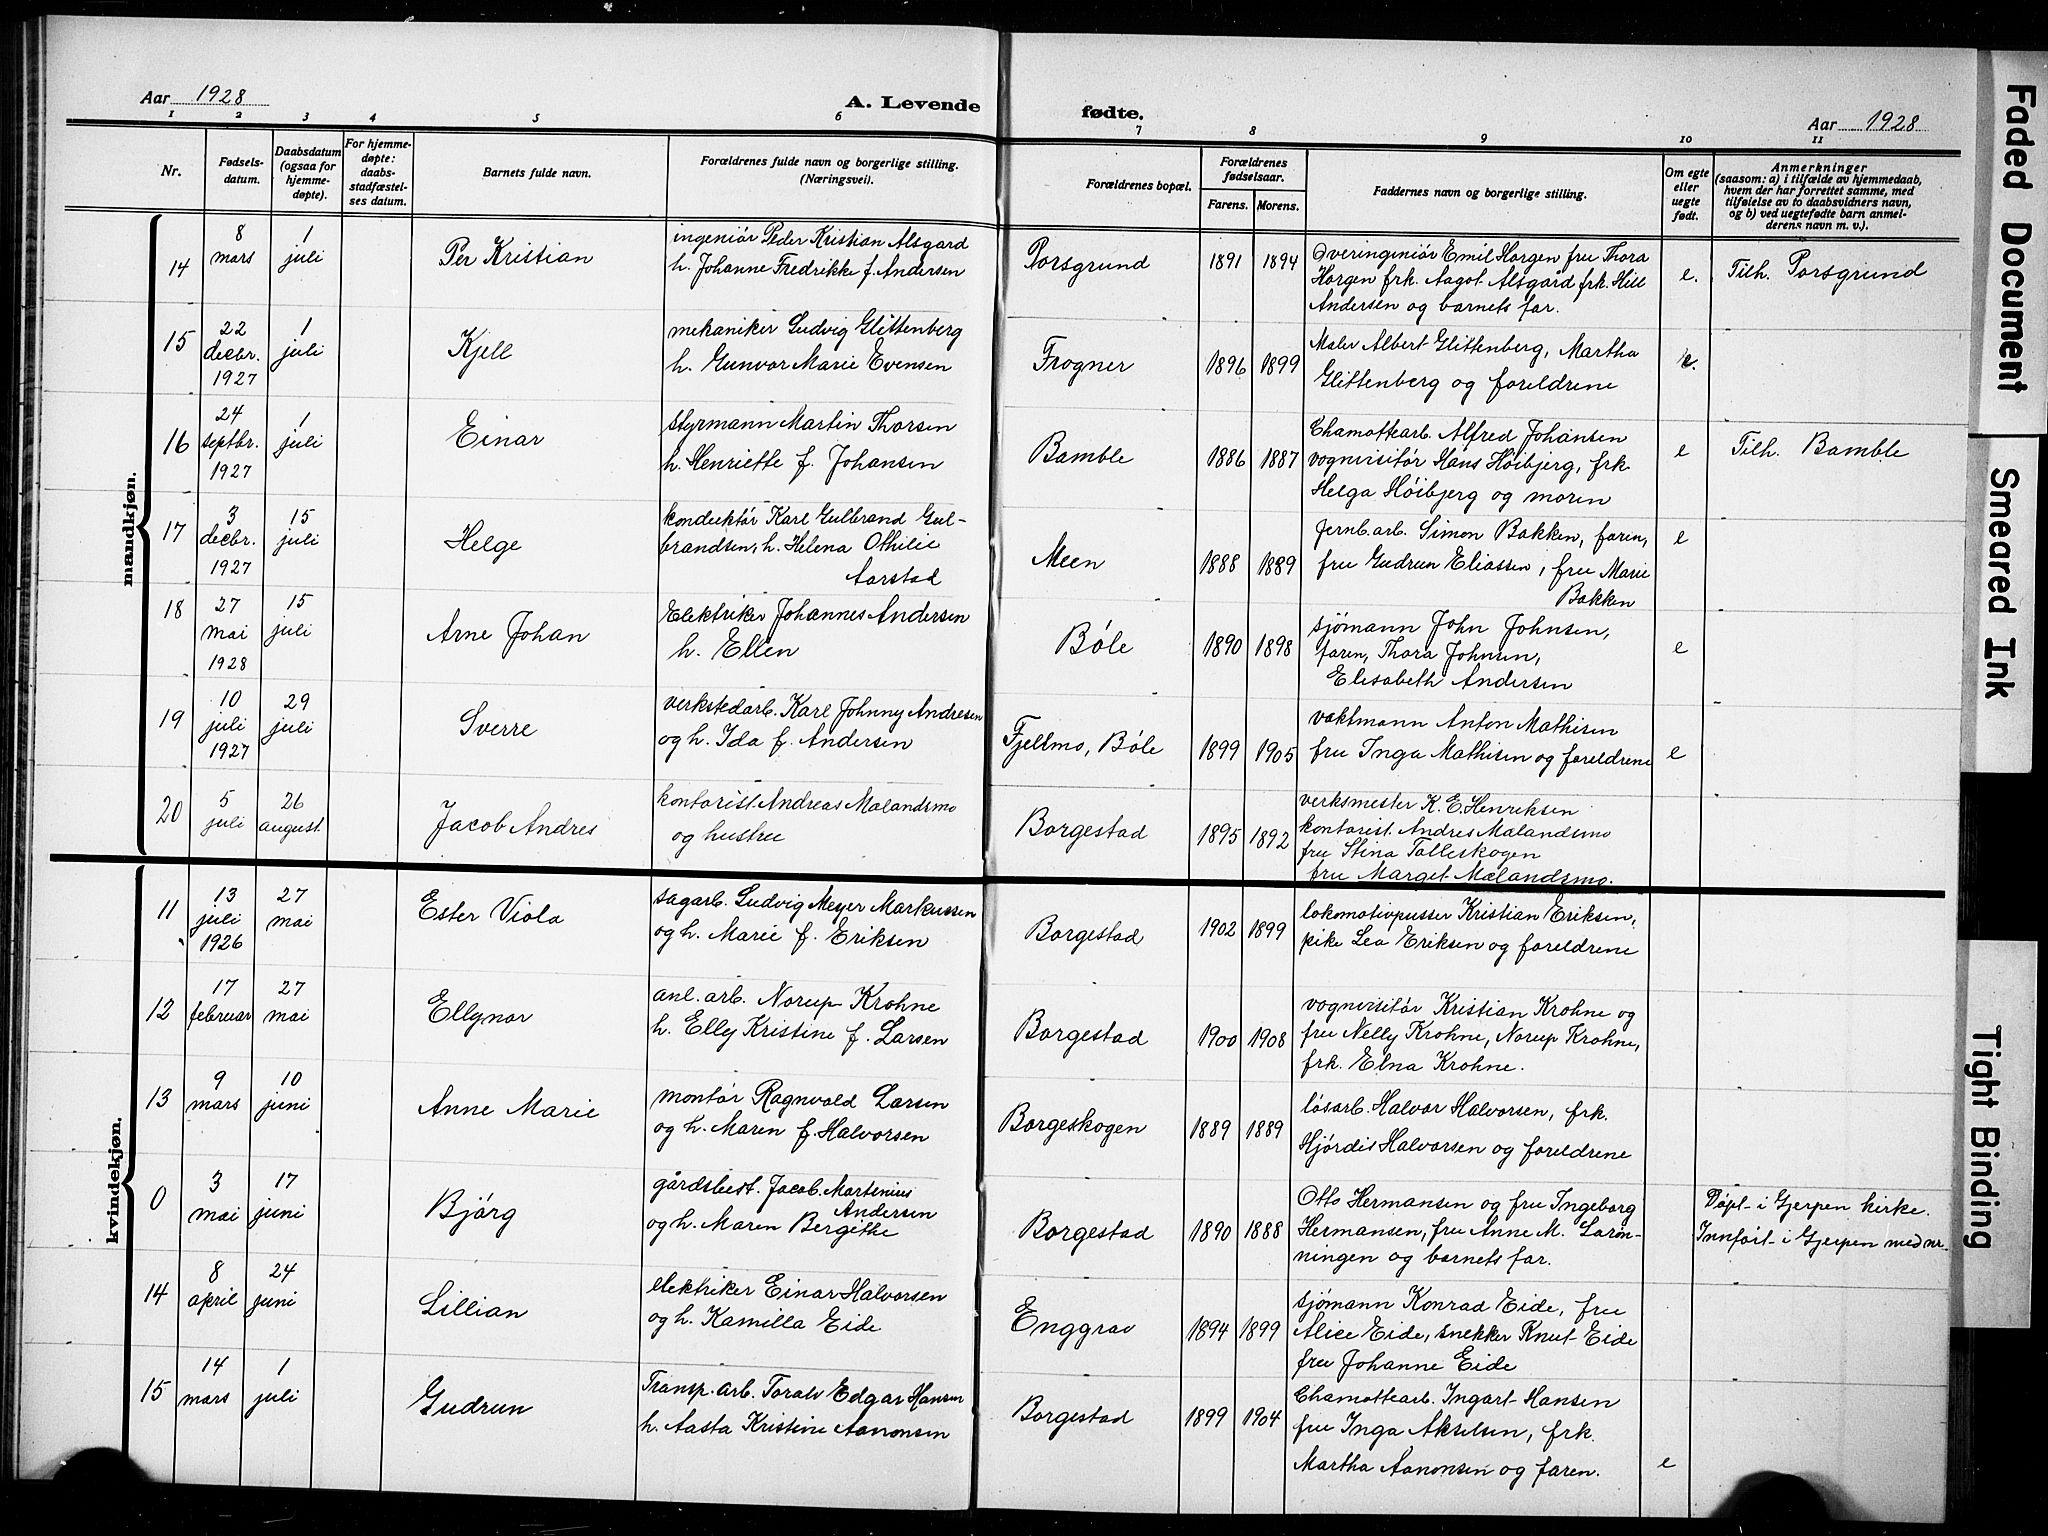 Aar 1928
A. Levende fødte.
Aar 1928
1 2 3 4 5 6 7 8 9 10 11
Nr.
Fødsels-
datum.
Daabsdatum
(ogsaa for
hjemme-
døpte).
For hjemme-
døpte:
daabs-
stadfæstel-
ses datum.
Barnets fulde navn.
Forældrenes fulde navn og borgerlige stilling.
(Næringsvei).
Forældrenes bopæl.
Forældrenes
fødselsaar.
Farens. Morens.
Faddernes navn og borgerlige stilling.
Om egte
eller
uegte
født.
Anmerkninger
(saasom: a) i tilfælde av hjemmedaab,
hvem der har forrettet samme, med
tilføielse av to daabsvidners navn,
og b) ved uegtefødte barn anmel-
derens navn m. v.).
mandkjøn.
14
8
mars
1
juli
Per Kristian
ingeniør Peder Kristian Alsgard
h. Johanne Fredrikke f. Andersen
Porsgrund
1891 1894
Overingeniør Emil Horgen fru Thora
Horgen frk. Aagot Alsgård frk. Hill
Andersen og barnets far.
e.
Tilh. Porsgrund
15
22
decbr.
1927
1
juli
Kjell
mekaniker Ludvig Glittenberg
h. Gunvor Marie Evensen
Frogner
1896 1899
Maler Albert Glittenberg, Martha
Glittenberg og foreldrene
e.
16
24
septbr.
1927
1
juli
Einar
styrmann Martin Thorsen
h. Henriette f. Johansen
Bamble
1886 1887
Chamottearb. Alfred Johansen
vognvisitør Hans Höibjerg, frk.
Helga Höibjerg og moren
e
Tilh. Bamble
17
3
decbr.
1927
15
juli
Helge
konduktør Karl Gulbrand Gul-
brandsen, h. Helena Othilie
Aarstad
Meen
1888 1889
Jernb.arb. Simon Bakken, faren,
fru Gudrun Eliassen, fru Marie
Bakken
e
18
27
mai
1928
15
juli
Arne Johan
Elektriker Johannes Andersen
h. Ellen
Bóle
1890 1898
sjömann John Johnsen,
faren, Thora Johnsen,
Elisabeth Andersen
e
19
10
juli
1927
29
juli
Sverre
verkstedarb. Karl Johnny Andresen
og h. Ida f. Andersen
Fjellmo, Bóle
1899 1905
vaktmann Anton Mathisen
fru Inga Mathisen og foreldrene
e
20
5
juli
26
august
Jacob Andres
kontorist Andreas Malandsmo
og hustru
Borgestad
1895 1892
verksmester K. E. Henriksen
kontorist Andres Malandsmo
fru Stina Talleskogen
fru Margit Målandsmo.
kvindekjøn.
11
13
juli
1926
27
mai
Ester Viola
sagarb. Ludvig Meyer Markussen
og h. Marie f. Eriksen
Borgestad
1902 1899
lokomotivpusser Kristian Eriksen,
pike Lea Eriksen og foreldrene
12
17
februar
27
mai
Ellynor
anl. arb. Norup Krohne
h. Elly Kristine f. Larsen
Borgestad
1900 1908
vognvisitór Kristian Krohne og
fru Nelly Krohne, Norup Krohne,
frk. Elna Krohne.
13
9
mars
10
juni
Anne Marie
montór Ragnvald Larsen
og h. Maren f. Halvorsen
Borgeskogen
1889 1889
lösarb. Halvor Halvorsen, frk.
Hjördis Halvorsen og foreldrene
0
3
mai
17
juni
Bjórg
gårdsbest. Jacob Martenius
Andersen
og h. Maren Bergithe
Borgestad
1890 1888
Otto Hermansen og fru Ingeborg
Hermansen, fru Anne M. Larön-
ningen og barnets far.
Döpt i Gjerpen kirke.
Innfört i Gjerpen med nr.
14
8
april
24
juni
Lillian
elektriker Einar Halvorsen
og h. Kamilla Eide
Enggrav
1894 1899
sjömann Konrad Eide, fru
Alice Eide, snekker Knut Eide
fru Johanne Eide
15
14
mars
1
juli
Gudrun
Transp. arb. Toralv Edgar Hansen
h. Aasta Kristine Aanonsen
Borgestad
1899 1904
Chamottearb. Ingart Hansen
fru Inga Akselsen, frk.
Martha Aanonsen og faren.
e
Faded Document
Smeared Ink
Tight Binding